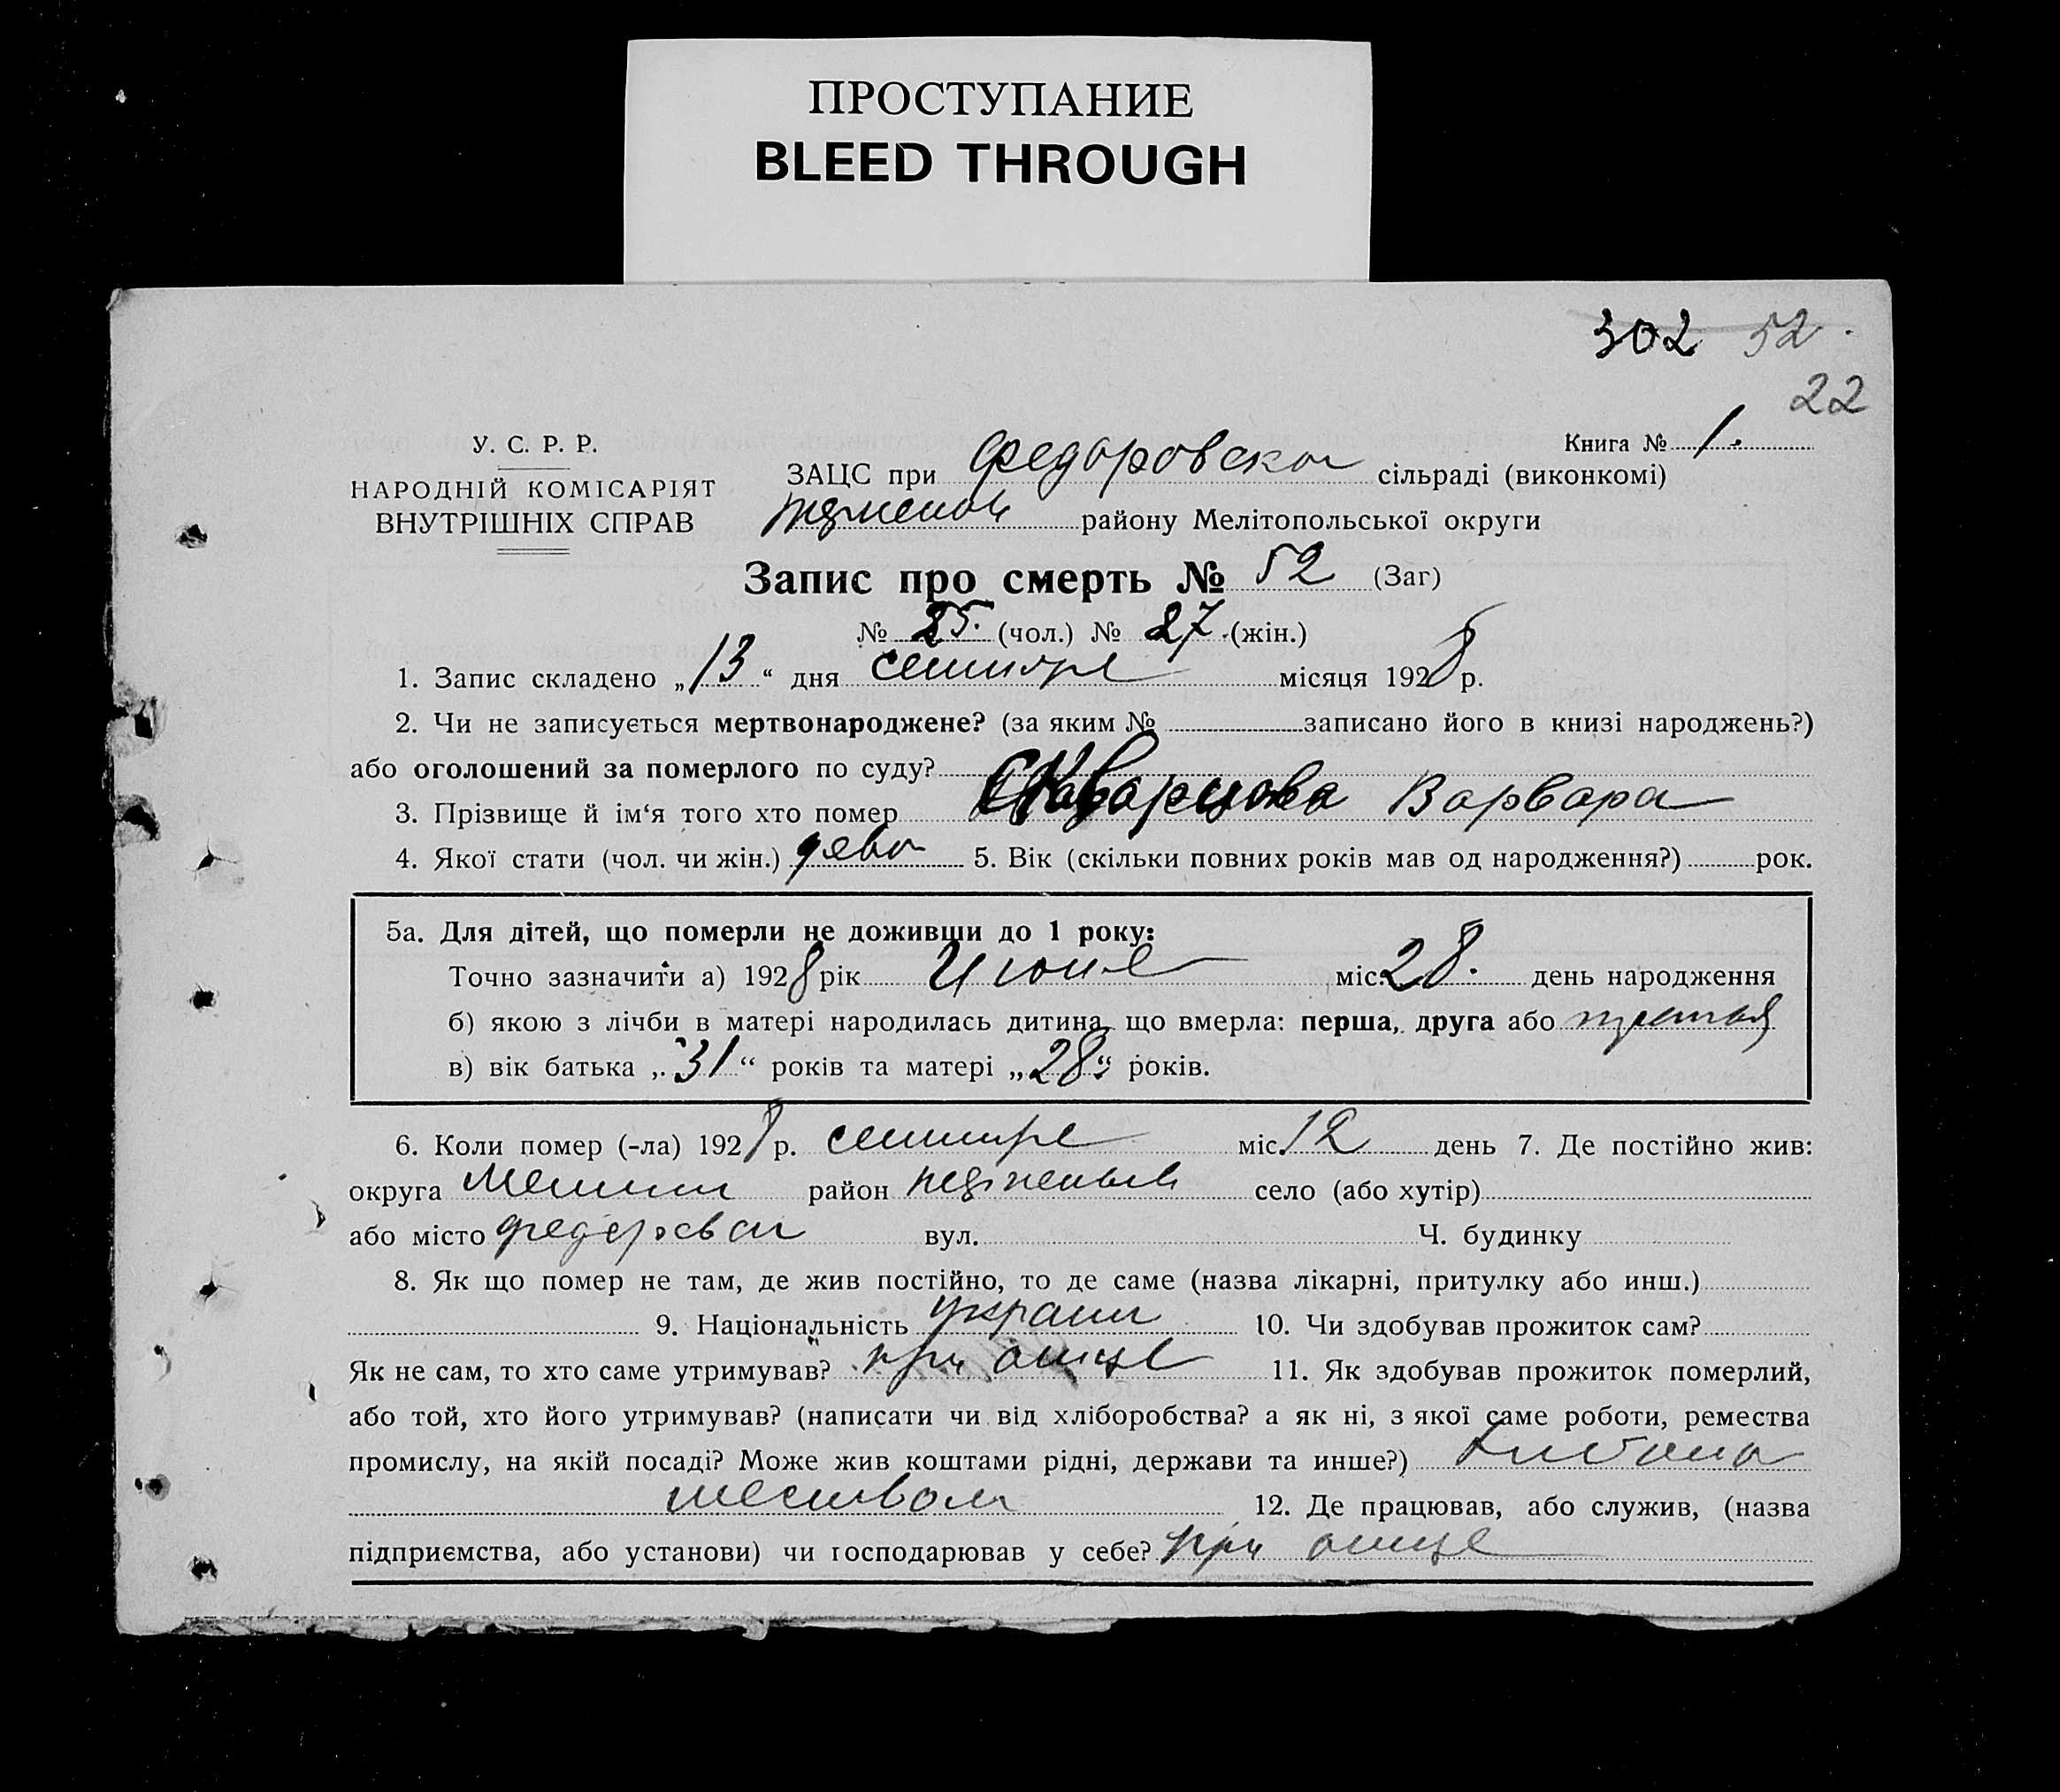 ПРОСТУПАНИЕ
BLEED THROUGH
302 52.
22
Книга № 1.
У. С. Р. Р.
НАРОДНІЙ КОМІСАРІЯТ
ВНУТРІШНІХ СПРАВ
ЗАЦС при Федоровском сільраді (виконкомі)
району Мелітопольської округи
Запис про смерть № 52 (Заг)
№ 25. (чол.) № 27. (жін.)
1. Запис складено „13“ дня сентяре місяця 1928 р.
2. Чи не записується мертвонароджене? (за яким № записано його в книзі народжень?)
або оголошений за померлого по суду?
3. Прізвище й ім‘я того хто помер Варвара
4. Якої стати (чол. чи жін.) дева 5. Вік (скільки повних років мав од народження?) рок.
5а. Для дітей, що померли не доживши до 1 року:
Точно зазначити а) 1928 рік Июне міс. 28. день народження
б) якою з лічби в матері народилась дитина, що вмерла: перша, друга або третья
в) вік батька „31“ років та матері „28“ років.
6. Коли помер (-ла) 1928 р. сентяре міс. 12 день 7. Де постійно жив:
округа Мелит район село (або хутір)
або місто вул. Ч. будинку
8. Як що помер не там, де жив постійно, то де саме (назва лікарні, притулку або инш.)
9. Національність украин 10. Чи здобував прожиток сам?
Як не сам, то хто саме утримував? при отце 11. Як здобував прожиток померлий,
або той, хто його утримував? (написати чи від хліборобства? а як ні, з якої саме роботи, ремества
промислу, на якій посаді? Може жив коштами рідні, держави та инше?)
12. Де працював, або служив, (назва
підприємства, або установи) чи господарював у себе? при отце